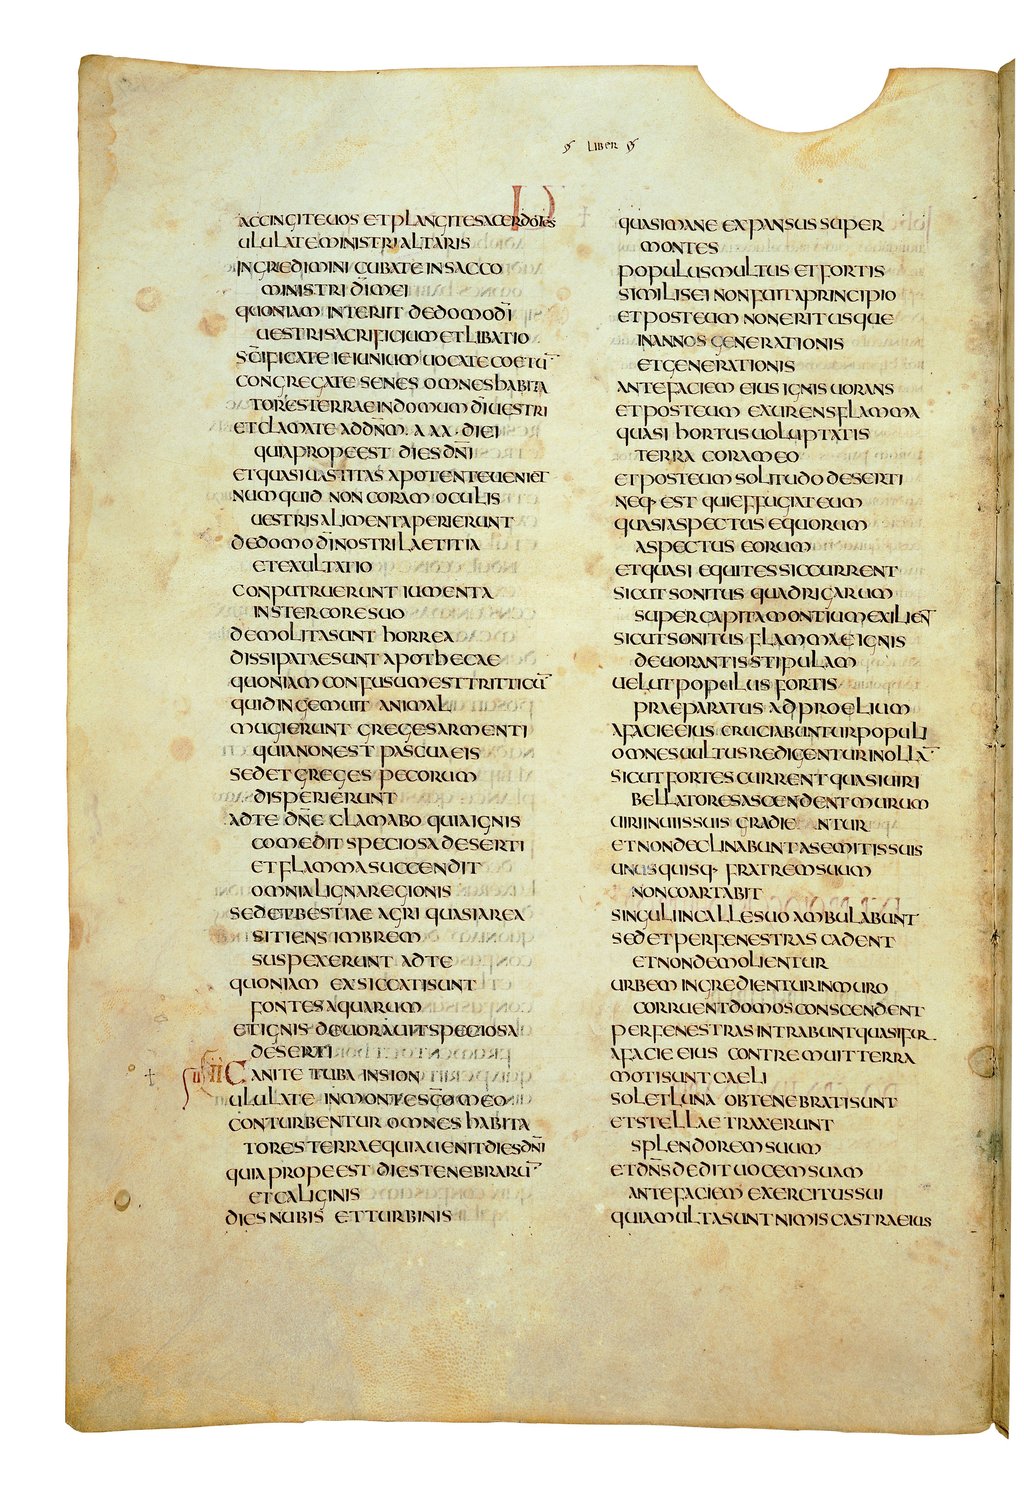 LIBER
ACCINGITEUOS ETPLANGITESACERDOTES
ULULATEMINISTRIALTARIS
INGREDIMINI CUBATE INSACCO
MINISTRI D̄IMEI
QUONIAM INTERIIT DEDOMOD̄I
UESTRISACRIFICIUMETLIBATIO
SC̄IFICATE IEIUNIUM UOCATECOETŪ
CONGREGATE SENES OMNESHABITA
TORESTERRAEINDOMUM D̄IUESTRI
ETCLAMATE ADDN̄M. A A A · DIEI
QUIAPROPEEST DIESDN̄I
ETQUASIUASTITAS APOTENTEUENIET
NUMQUID NONCORAM OCULIS
UESTRISALIMENTAPERIERUNT
DEDOMO D̄INOSTRI LAETITIA
ETEXULTATIO
CONPUTRUERUNT IUMENTA
INSTERCORESUO
DEMOLITASUNT HORREA
DISSIPATAESUNT APOTHECAE
QUONIAM CONFUSUMESTTRITICŪ
QUIDINGEMUIT ANIMAL
MUGIERUNT GREGESARMENTI
QUIANONEST PASCUAEIS
SEDETGREGES PECORUM
DISPERIERUNT
ADTE DN̄E CLAMABO QUIAIGNIS
COMEDIT SPECIOSADESERTI
ETFLAMMASUCCENDIT
OMNIALIGNAREGIONIS
SEDETBESTIAE AGRI QUASIAREA
SITIENS IMBREM
SUSPEXERUNT ADTE
QUONIAM EXSICCATISUNT
FONTESAQUARUM
ETIGNIS DEUORAUITSPECIOSA
DESERTI
CANITE TUBA INSION
ULULATE INMONTESC̄OMEO
CONTURBENTUR OMNESHABITA
TORESTERRAEQUIAUENITDIESDN̄I
QUIAPROPEEST DIESTENEBRARŪ
ETCALIGINIS
DIESNUBIS ETTURBINIS
QUASIMANE EXPANSUS SUPER
MONTES
POPULUSMULTUS ETFORTIS
SIMILISEI NONFUITAPRINCIPIO
ETPOSTEUM NONERITUSQUE
INANNOS GENERATIONIS
ETGENERATIONIS
ANTEFACIEM EIUS IGNIS UORANS
ETPOSTEUM EXURENSFLAMMA
QUASI HORTUSUOLUPTATIS
TERRA CORAMEO
ETPOSTEUMSOLITUDODESERTI
NEQ· EST QUIEFFUGIATEUM
QUASIASPECTUS EQUORUM
ASPECTUS EORUM
ETQUASI EQUITESSICCURRENT
SICUTSONITUS QUADRIGARUM
SUPERCAPITAMONTIUMEXILIEN̄T
SICUTSONITUS FLAMMAEIGNIS
DEUORANTISSTIPULAM
UELUTPOPULUS FORTIS
PRAEPARATUS ADPROELIUM
AFACIEEIUS CRUCIABUNTURPOPULI
OMNESUULTUSREDIGENTURINOLLĀ
SICUTFORTESCURRENTQUASIUIRI
BELLATORESASCENDENTMURUM
UIRIINUIISSUIS GRADIE NTUR
ETNONDECLINABUNTASEMITISSUIS
UNUSQUISQ· FRATREMSUUM
NONCOARTABIT
SINGULIINCALLESUOAMBULABUNT
SEDETPERFENESTRAS CADENT
ETNONDEMOLIENTUR
URBEM INGREDIENTURINMURO
CORRUENTDOMOSCONSCENDENT
PERFENESTRASINTRABUNTQUASIFUR.
AFACIE EIUS CONTREMUITTERRA
MOTISUNTCAELI
SOLETLUNA OBTENEBRATISUNT
ETSTELLAETRAXERUNT
SPLENDOREMSUUM
ETDN̄SDEDITUOCEMSUAM
ANTEFACIEM EXERCITUSSUI
QUIAMULTASUNTNIMISCASTRAEIUS